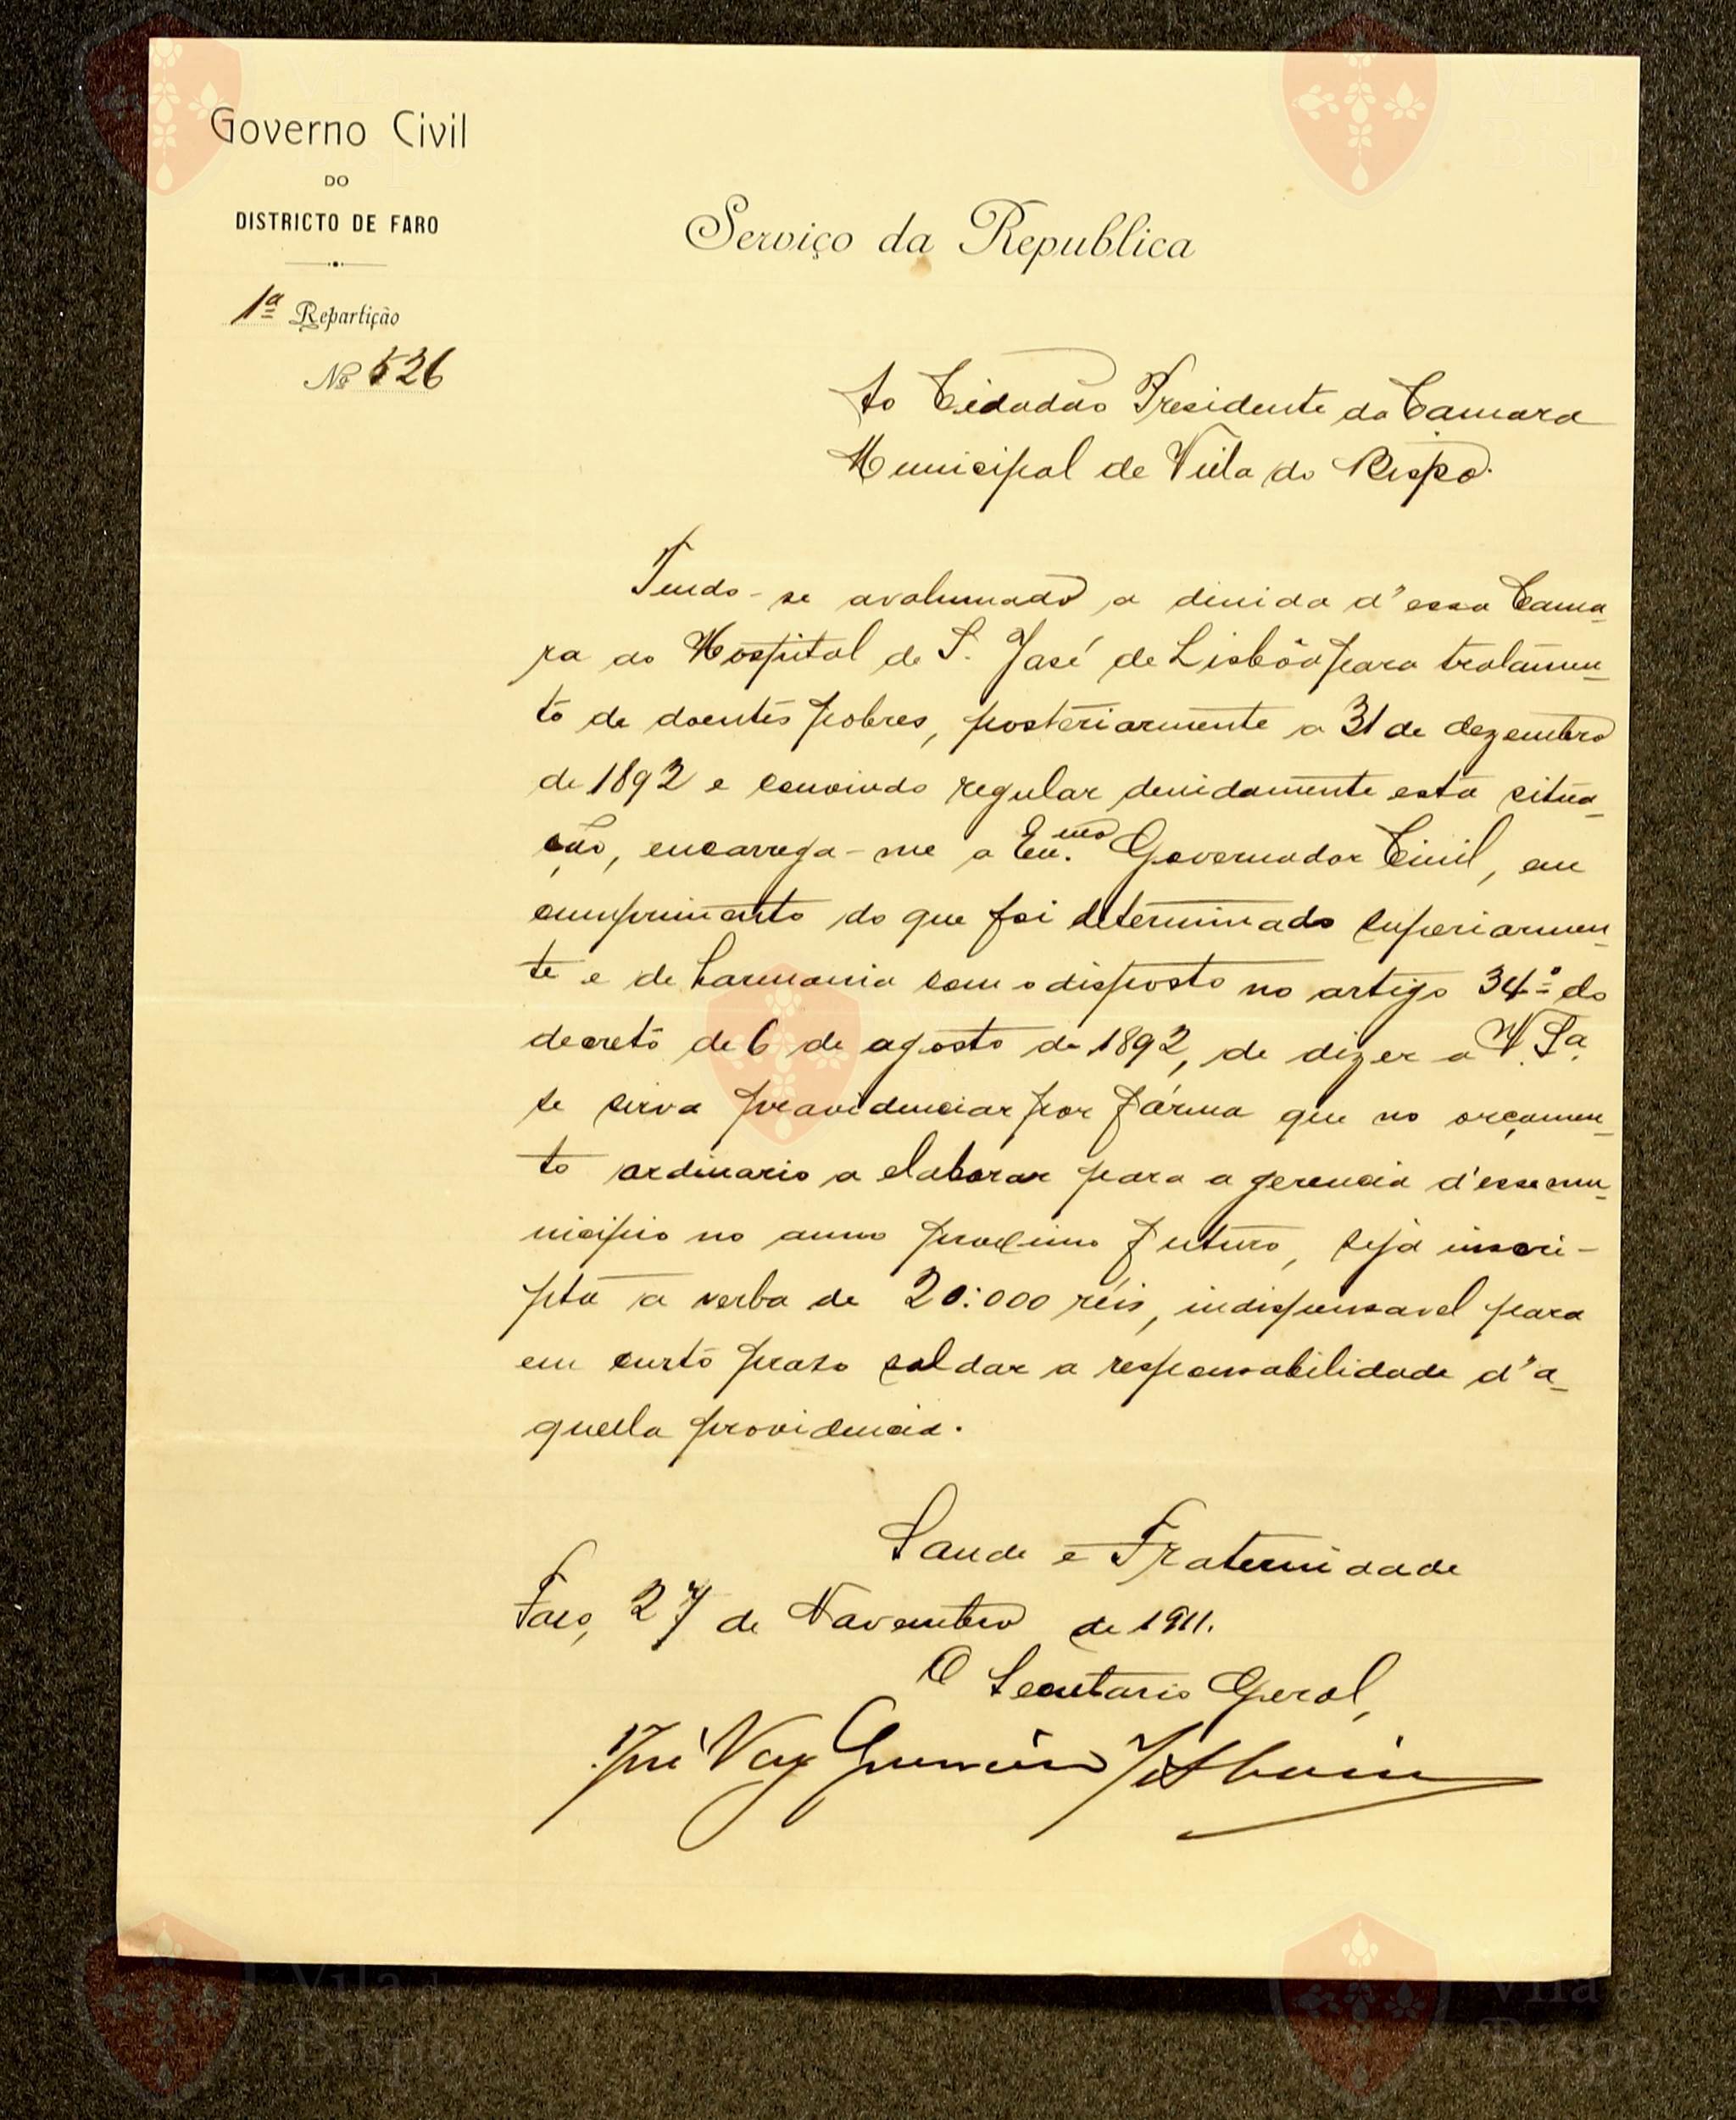 Governo Civil
DO
DISTRICTO DE FARO
1ª Repartição
Nº 526
Serviço da Republica
Ao Cidadão Presidente da Camara
Municipal de Villa do Bispo.
Tendo-se avolumado a divida d'essa Cama-
ra ao Hospital de S. José de Lisbôa para tratamen-
to de doentes pobres, posteriormente a 31 de dezembro
de 1892 e convindo regular devidamente esta situa-
ção, encarrega-me o Exmo. Governador Civil, em
cumprimento do que foi determinado superiormen-
te e de harmonia com o disposto no artigo 34º do
decreto de 6 de agosto de 1892, de dizer a V. Sa.
se sirva providenciar por fórma que no orçamen-
to ordinario a elaborar para a gerencia d'esse mu-
nicipio no anno proximo futuro, seja inscri-
pta a verba de 20:000 réis, indispensavel para
em curto praso saldar a responsabilidade d'a-
quella providencia.
Saude e Fraternidade
Faro, 27 de Novembro de 1911.
O Secretario Geral,
José Vaz
Vila do
Bispo